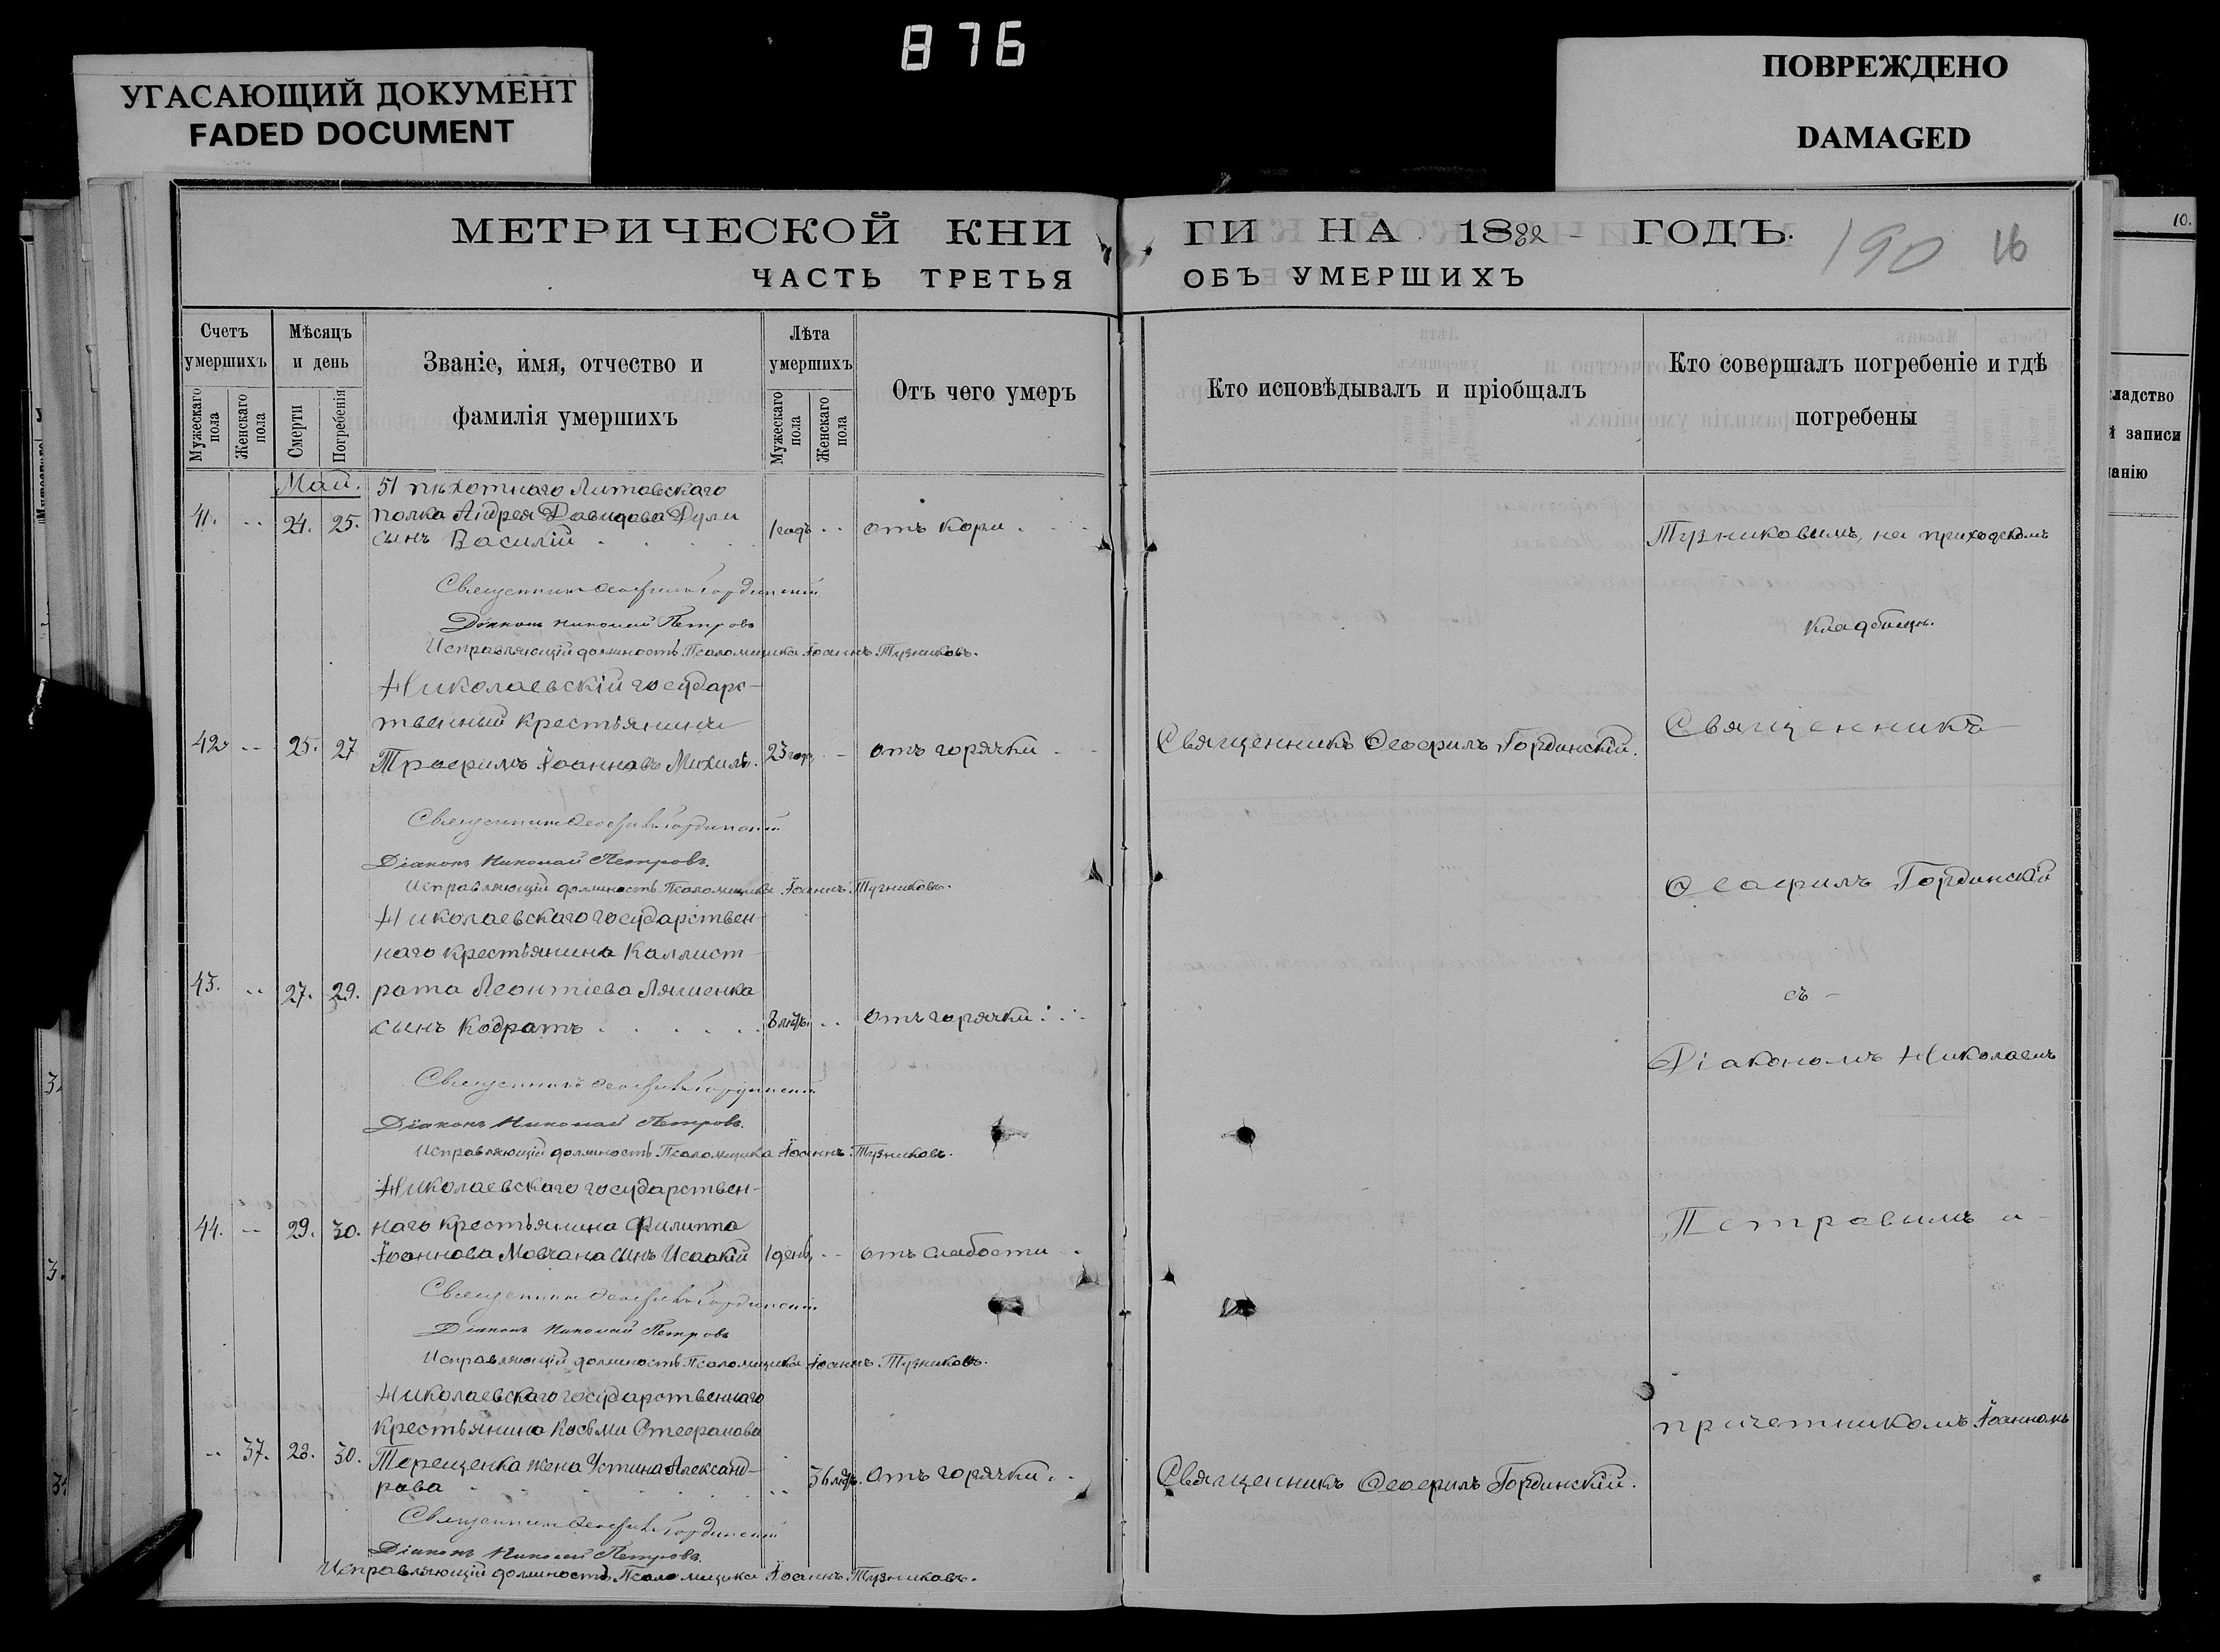 876
УГАСАЮЩИЙ ДОКУМЕНТ
FADED DOCUMENT
ПОВРЕЖДЕНО
DAMAGED
МЕТРИЧЕСКОЙ КНИ
ГИ НА 1882 ГОДЪ.
190 16
ЧАСТЬ ТРЕТЬЯ
ОБЪ УМЕРШИХЪ
Счетъ умершихъ
Мужескаго пола
Женскаго пола
Мѣсяцъ и день
Смерти
Погребенія
Званіе, имя, отчество и
фамилія умершихъ
Лѣта умершихъ
Мужескаго пола
Женскаго пола
Отъ чего умеръ
Кто исповѣдывалъ и пріобщалъ
Кто совершалъ погребеніе и гдѣ
погребены
Май.
51 пѣхотнаго Литовскаго
41. 24. 25. полка Андрея Давидова Дули
сынъ Василій 1 годъ отъ кори
Священникъ Ѳеофилъ Гординскій
Діаконъ Николай Петровъ
Исправляющій должность Псаломщика Іоаннъ Тузниковъ.
Николаевскій государс-
твенный крестьянинъ
42. 25. 27 Трофимъ Іоанновъ 23 года отъ горячки
Священникъ Ѳеофилъ Гординскій
Діаконъ Николай Петровъ.
Исправляющій должность Псаломщика Іоаннъ Тузниковъ.
Николаевскаго государствен-
наго крестьянина Каллист-
43. 27. 29. рата Леонтіева Ляшенка
сынъ Кодратъ 8 лѣтъ. отъ горячки
Священникъ Ѳеофилъ Гординскій
Діаконъ Николай Петровъ.
Исправляющій должность Псаломщика Іоаннъ Тузниковъ.
Николаевскаго государствен-
44. 29. 30. наго крестьянина Филиппа
Іоаннова Мовчана сынъ Исаакій 1 день отъ слабости
Священникъ Ѳеофилъ Гординскій
Діаконъ Николай Петровъ
Исправляющій должность Псаломщика Іоаннъ Тузниковъ.
Николаевскаго государственнаго
крестьянина Косьми Стефанова
37. 28. 30. Терещенка жена Устина Александ-
рова 36 лѣтъ. отъ горячки
Священникъ Ѳеофилъ Гординскій
Діаконъ Николай Петровъ.
Исправляющій должность Псаломщика Іоаннъ Тузниковъ.
Священникъ Ѳеофилъ Гординскій.
Священникъ Ѳеофилъ Гординскій.
Тузниковымъ, на приходскомъ
кладбищѣ.
Священникъ
Ѳеофилъ Гординскій
съ
Діакономъ Николаемъ
Петровымъ и
причетникомъ Іоанномъ
10.
ладство
й записи
анію